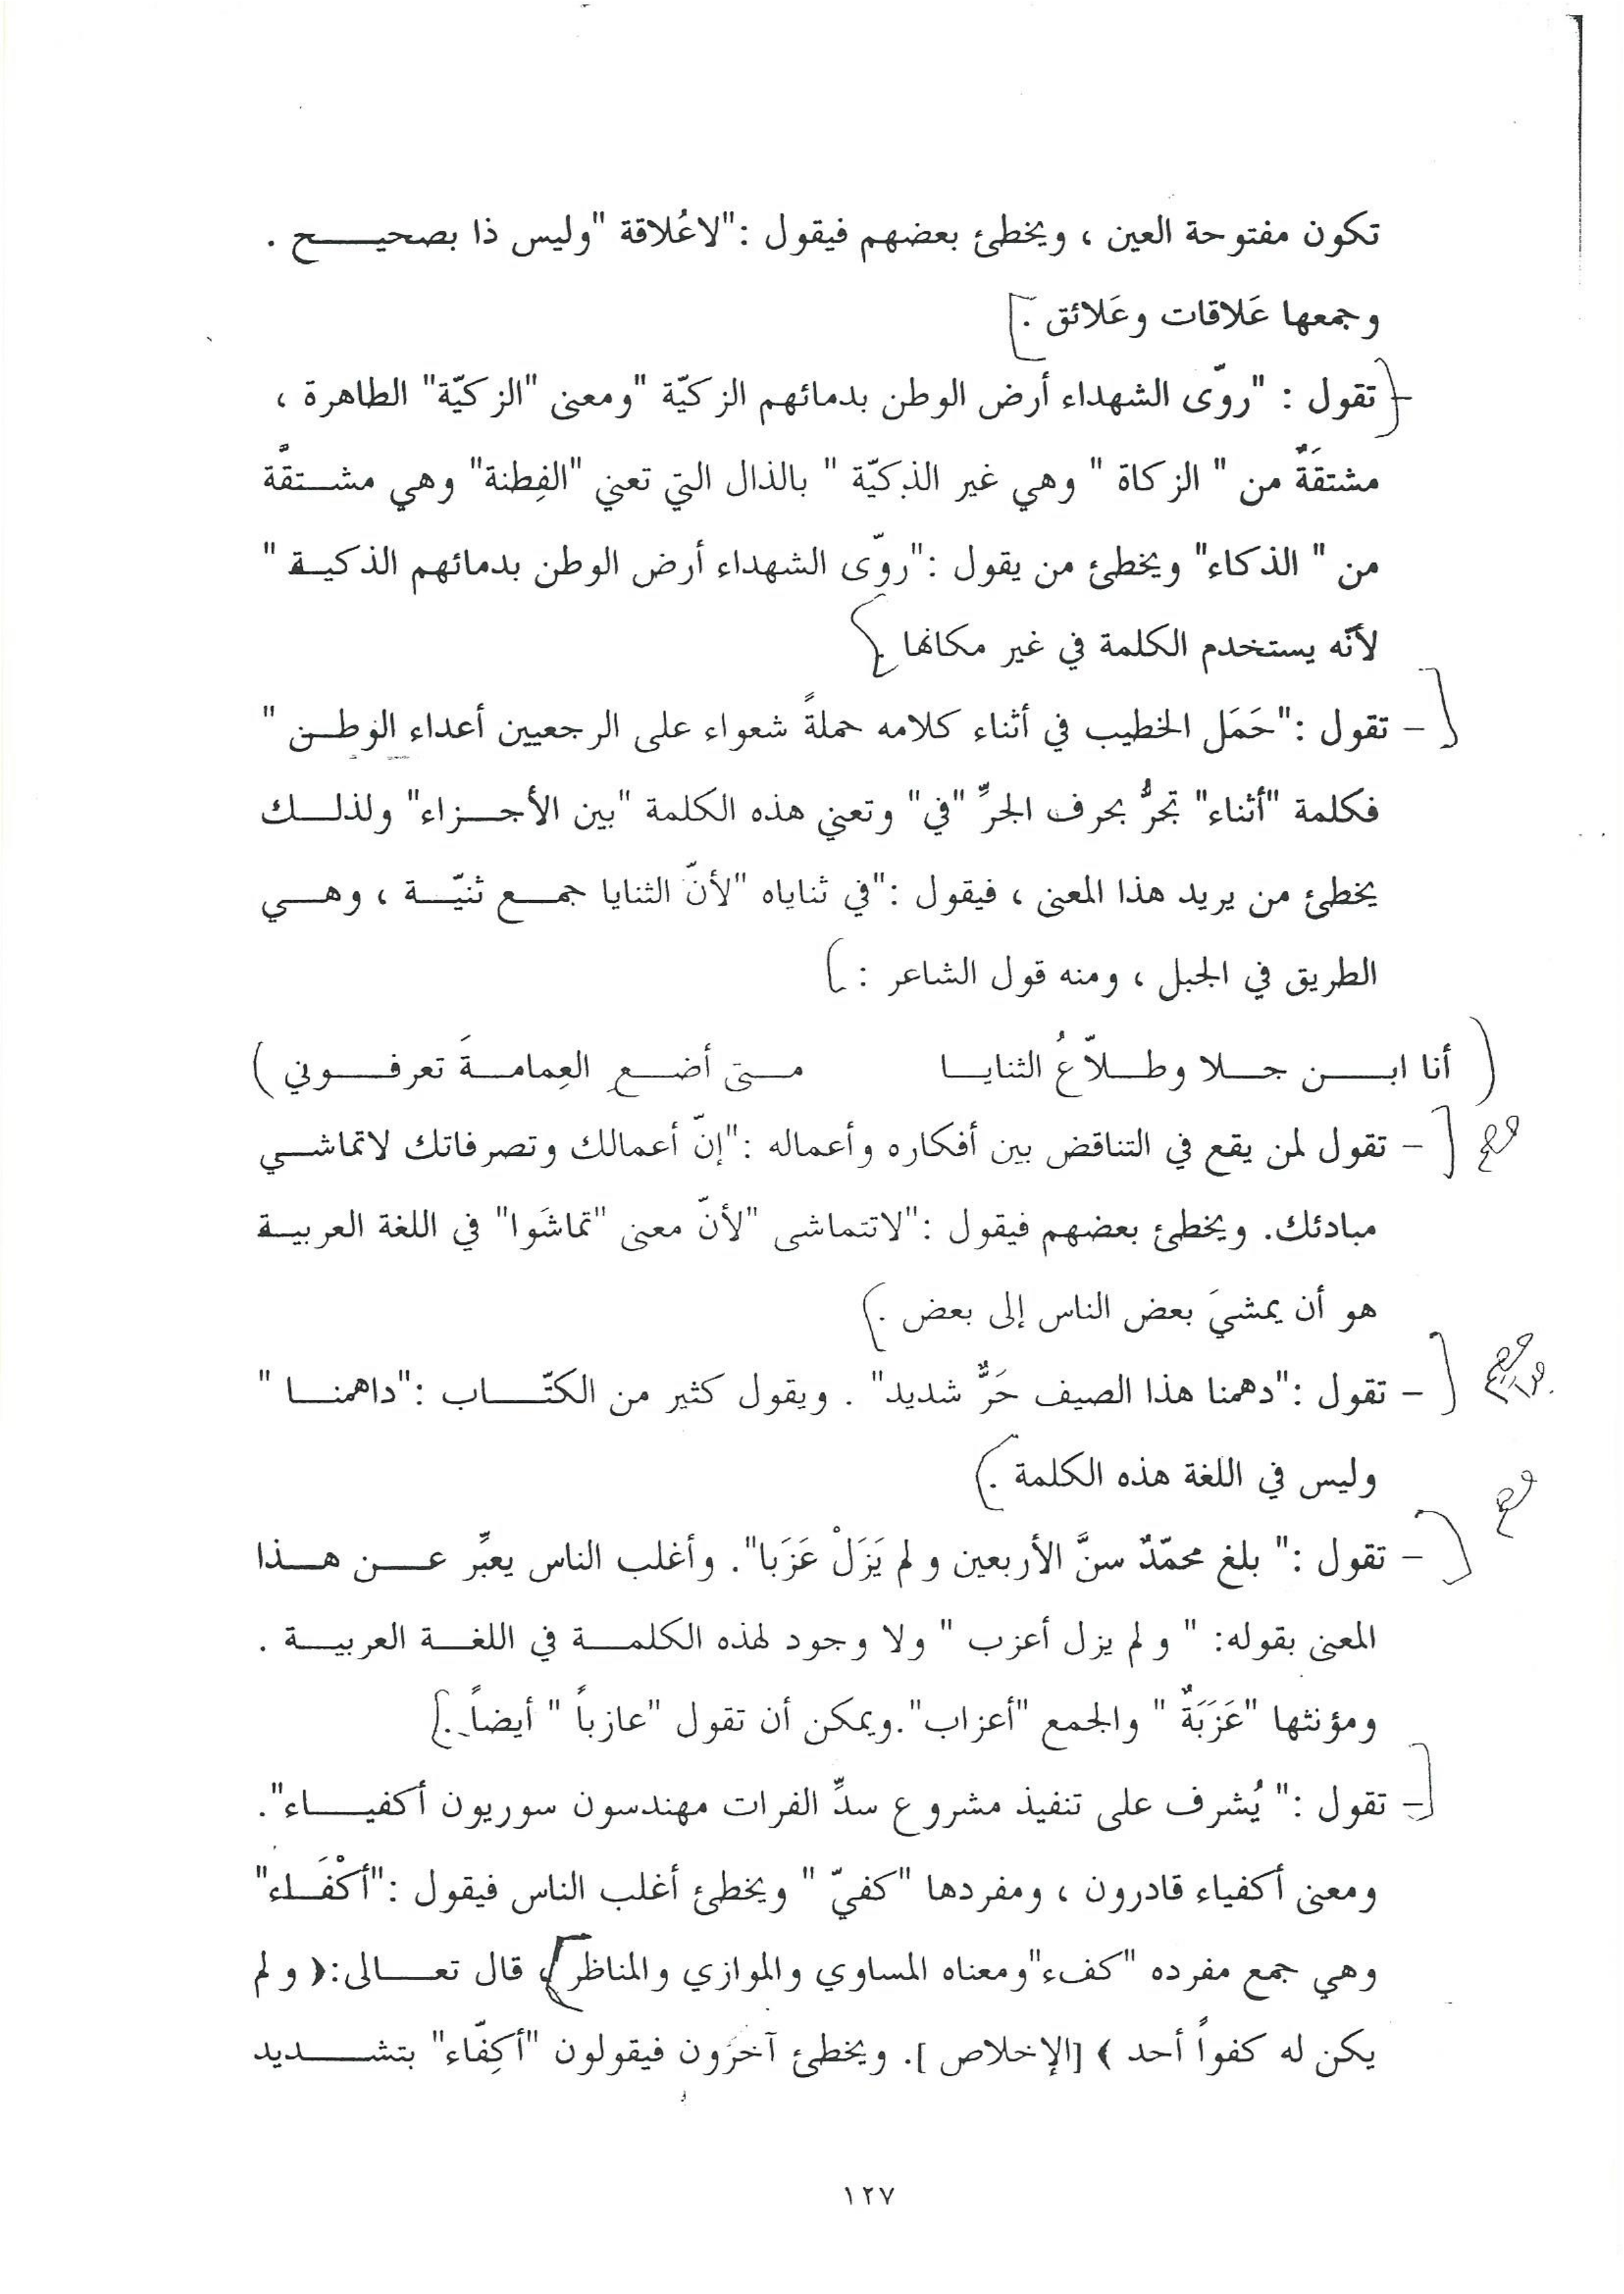 تكون مفتوحة العين ، ويخطئ بعضهم فيقول :"لاعُلاقة "وليس ذا بصحيح .
وجمعها عَلاقات وعَلائق .]
{تقول : "روّى الشهداء أرض الوطن بدمائهم الزكيّة "ومعنى "الزكيّة" الطاهرة ،
مشتقَةٌ من " الزكاة " وهي غير الذكيّة " بالذال التي تعني "الفِطنة" وهي مشتقّة
من " الذكاء" ويخطئ من يقول :"روّى الشهداء أرض الوطن بدمائهم الذكية "
لأنّه يستخدم الكلمة في غير مكانها .}
[– تقول :"حَمَل الخطيب في أثناء كلامه حملةً شعواء على الرجعيين أعداء الوطن "
فكلمة "أثناء" تجرُّ بحرف الجرِّ "في" وتعني هذه الكلمة "بين الأجزاء" ولذلك
يخطئ من يريد هذا المعنى ، فيقول :"في ثناياه "لأنّ الثنايا جمع ثنيّة ، وهي
الطريق في الجبل ، ومنه قول الشاعر : ]
( أنا ابن جلا وطلاّعُ الثنايا متى أضع العِمامةَ تعرفوني )
[– تقول لمن يقع في التناقض بين أفكاره وأعماله :"إنّ أعمالك وتصرفاتك لاتماشي
مبادئك. ويخطئ بعضهم فيقول :"لاتتماشى "لأنّ معنى "تماشَوا" في اللغة العربية
هو أن يمشيَ بعض الناس إلى بعض .)
[– تقول :"دهمنا هذا الصيف حَرٌّ شديد" . ويقول كثير من الكتّاب :"داهمنا "
وليس في اللغة هذه الكلمة .)
[– تقول :" بلغ محمّدٌ سنَّ الأربعين ولم يَزَلْ عَزَبا". وأغلب الناس يعبِّر عن هذا
المعنى بقوله: " ولم يزل أعزب " ولا وجود لهذه الكلمة في اللغة العربية .
ومؤنثها "عَزَبَةٌ " والجمع "أعزاب".ويمكن أن تقول "عازباً " أيضاً .]
[– تقول :" يُشرف على تنفيذ مشروع سدِّ الفرات مهندسون سوريون أكفياء".
ومعنى أكفياء قادرون ، ومفردها "كفيّ " ويخطئ أغلب الناس فيقول :"أكْفَاء"
وهي جمع مفرده "كفء"ومعناه المساوي والموازي والمناظر]، قال تعالى:﴿ ولم
يكن له كفواً أحد ﴾ [الإخلاص ]. ويخطئ آخرون فيقولون "أكِفّاء" بتشديد
١٢٧